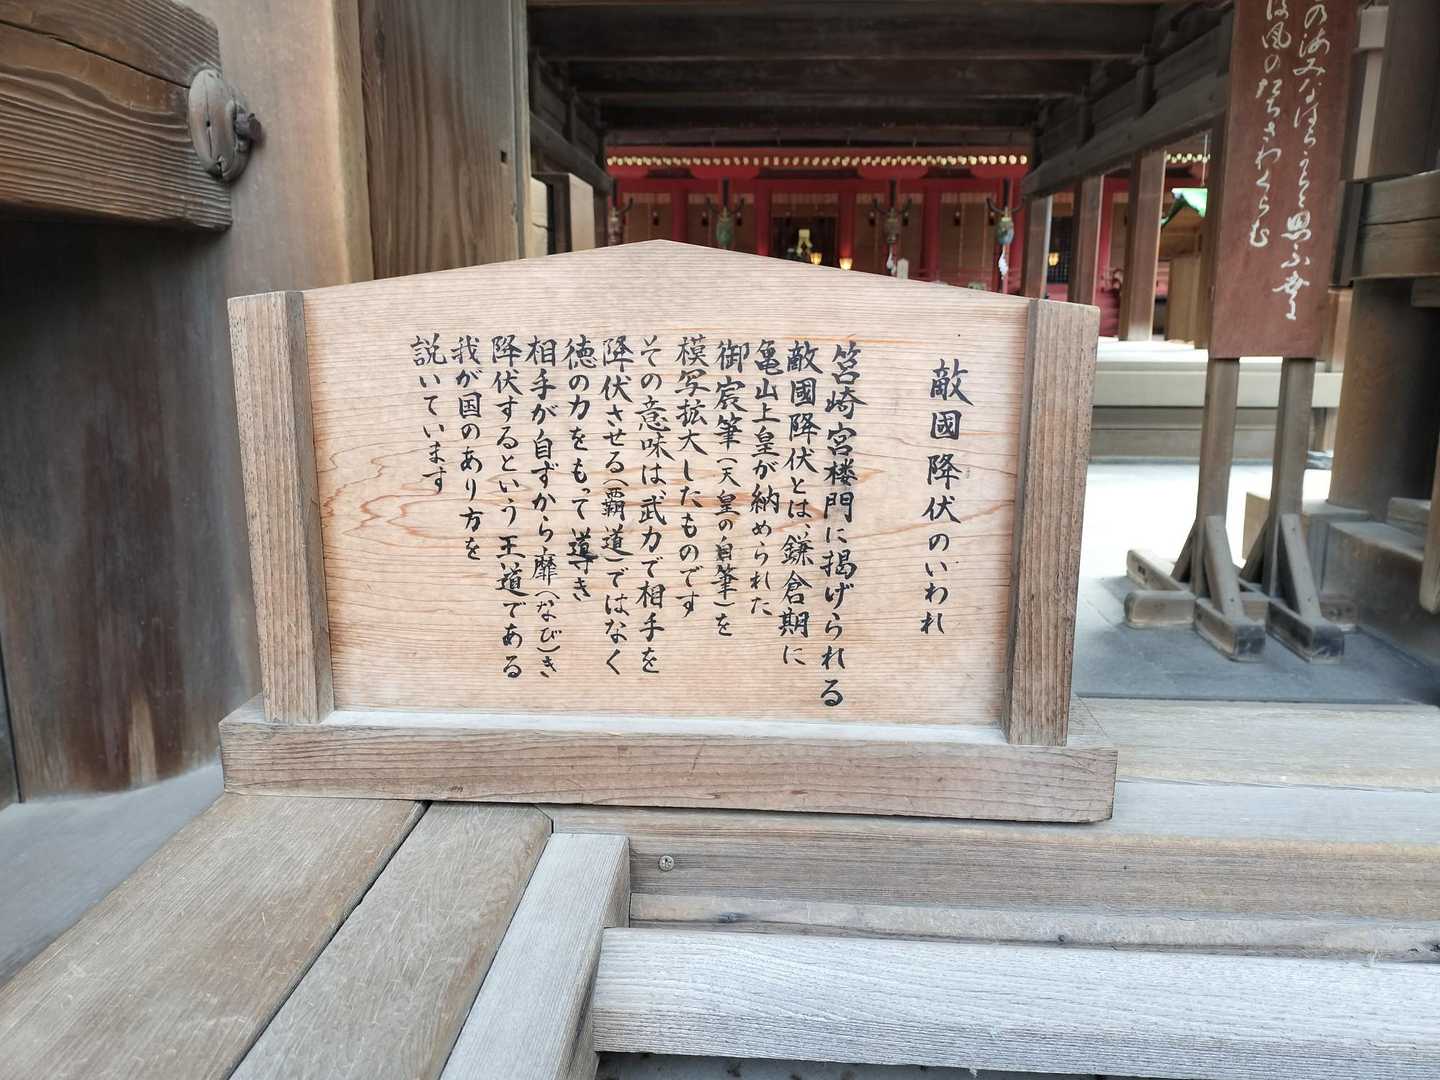 敵國降伏のいわれ
筥崎宮楼門に掲げられる
敵國降伏とは、鎌倉期に
亀山上皇が納められた
御宸筆(天皇の自筆)を
模写拡大したものです
その意味は武力で相手を
降伏させる(覇道)ではなく
徳の力をもって導き
相手が自ずから靡(なび)き
降伏するという王道である
我が国のあり方を
説いています